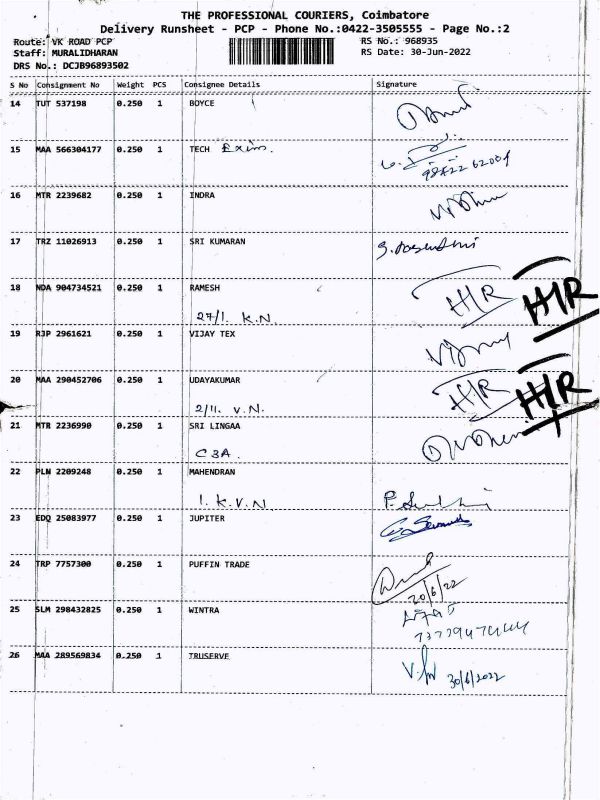 THE PROFESSIONAL COURIERS, Coimbatore
Delivery Runsheet - PCP - Phone No.:0422-3505555 - Page No.:2
Route: VK ROAD PCP
RS No.: 968935
Staff: MURALIDHARAN
RS Date: 30-Jun-2022
DRS No.: DCJB96893502
S No Consignment No Weight PCS Consignee Details Signature
14 TUT 537198 0.250 1 BOYCE
15 MAA 566304177 0.250 1 TECH Exim.
16 MTR 2239682 0.250 1 INDRA
17 TRZ 11026913 0.250 1 SRI KUMARAN
18 NDA 904734521 0.250 1 RAMESH H/R H/R
27/1. K.N.
19 RJP 2961621 0.250 1 VIJAY TEX
20 MAA 290452706 0.250 1 UDAYAKUMAR H/R H/R
2/11. V.N.
21 MTR 2236990 0.250 1 SRI LINGAA
C3A.
22 PLN 2209248 0.250 1 MAHENDRAN
1. K.V.N
23 EDQ 25083977 0.250 1 JUPITER
24 TRP 7757300 0.250 1 PUFFIN TRADE
20/6/22
25 SLM 298432825 0.250 1 WINTRA
26 MAA 289569834 0.250 1 TRUSERVE
30/6/2022